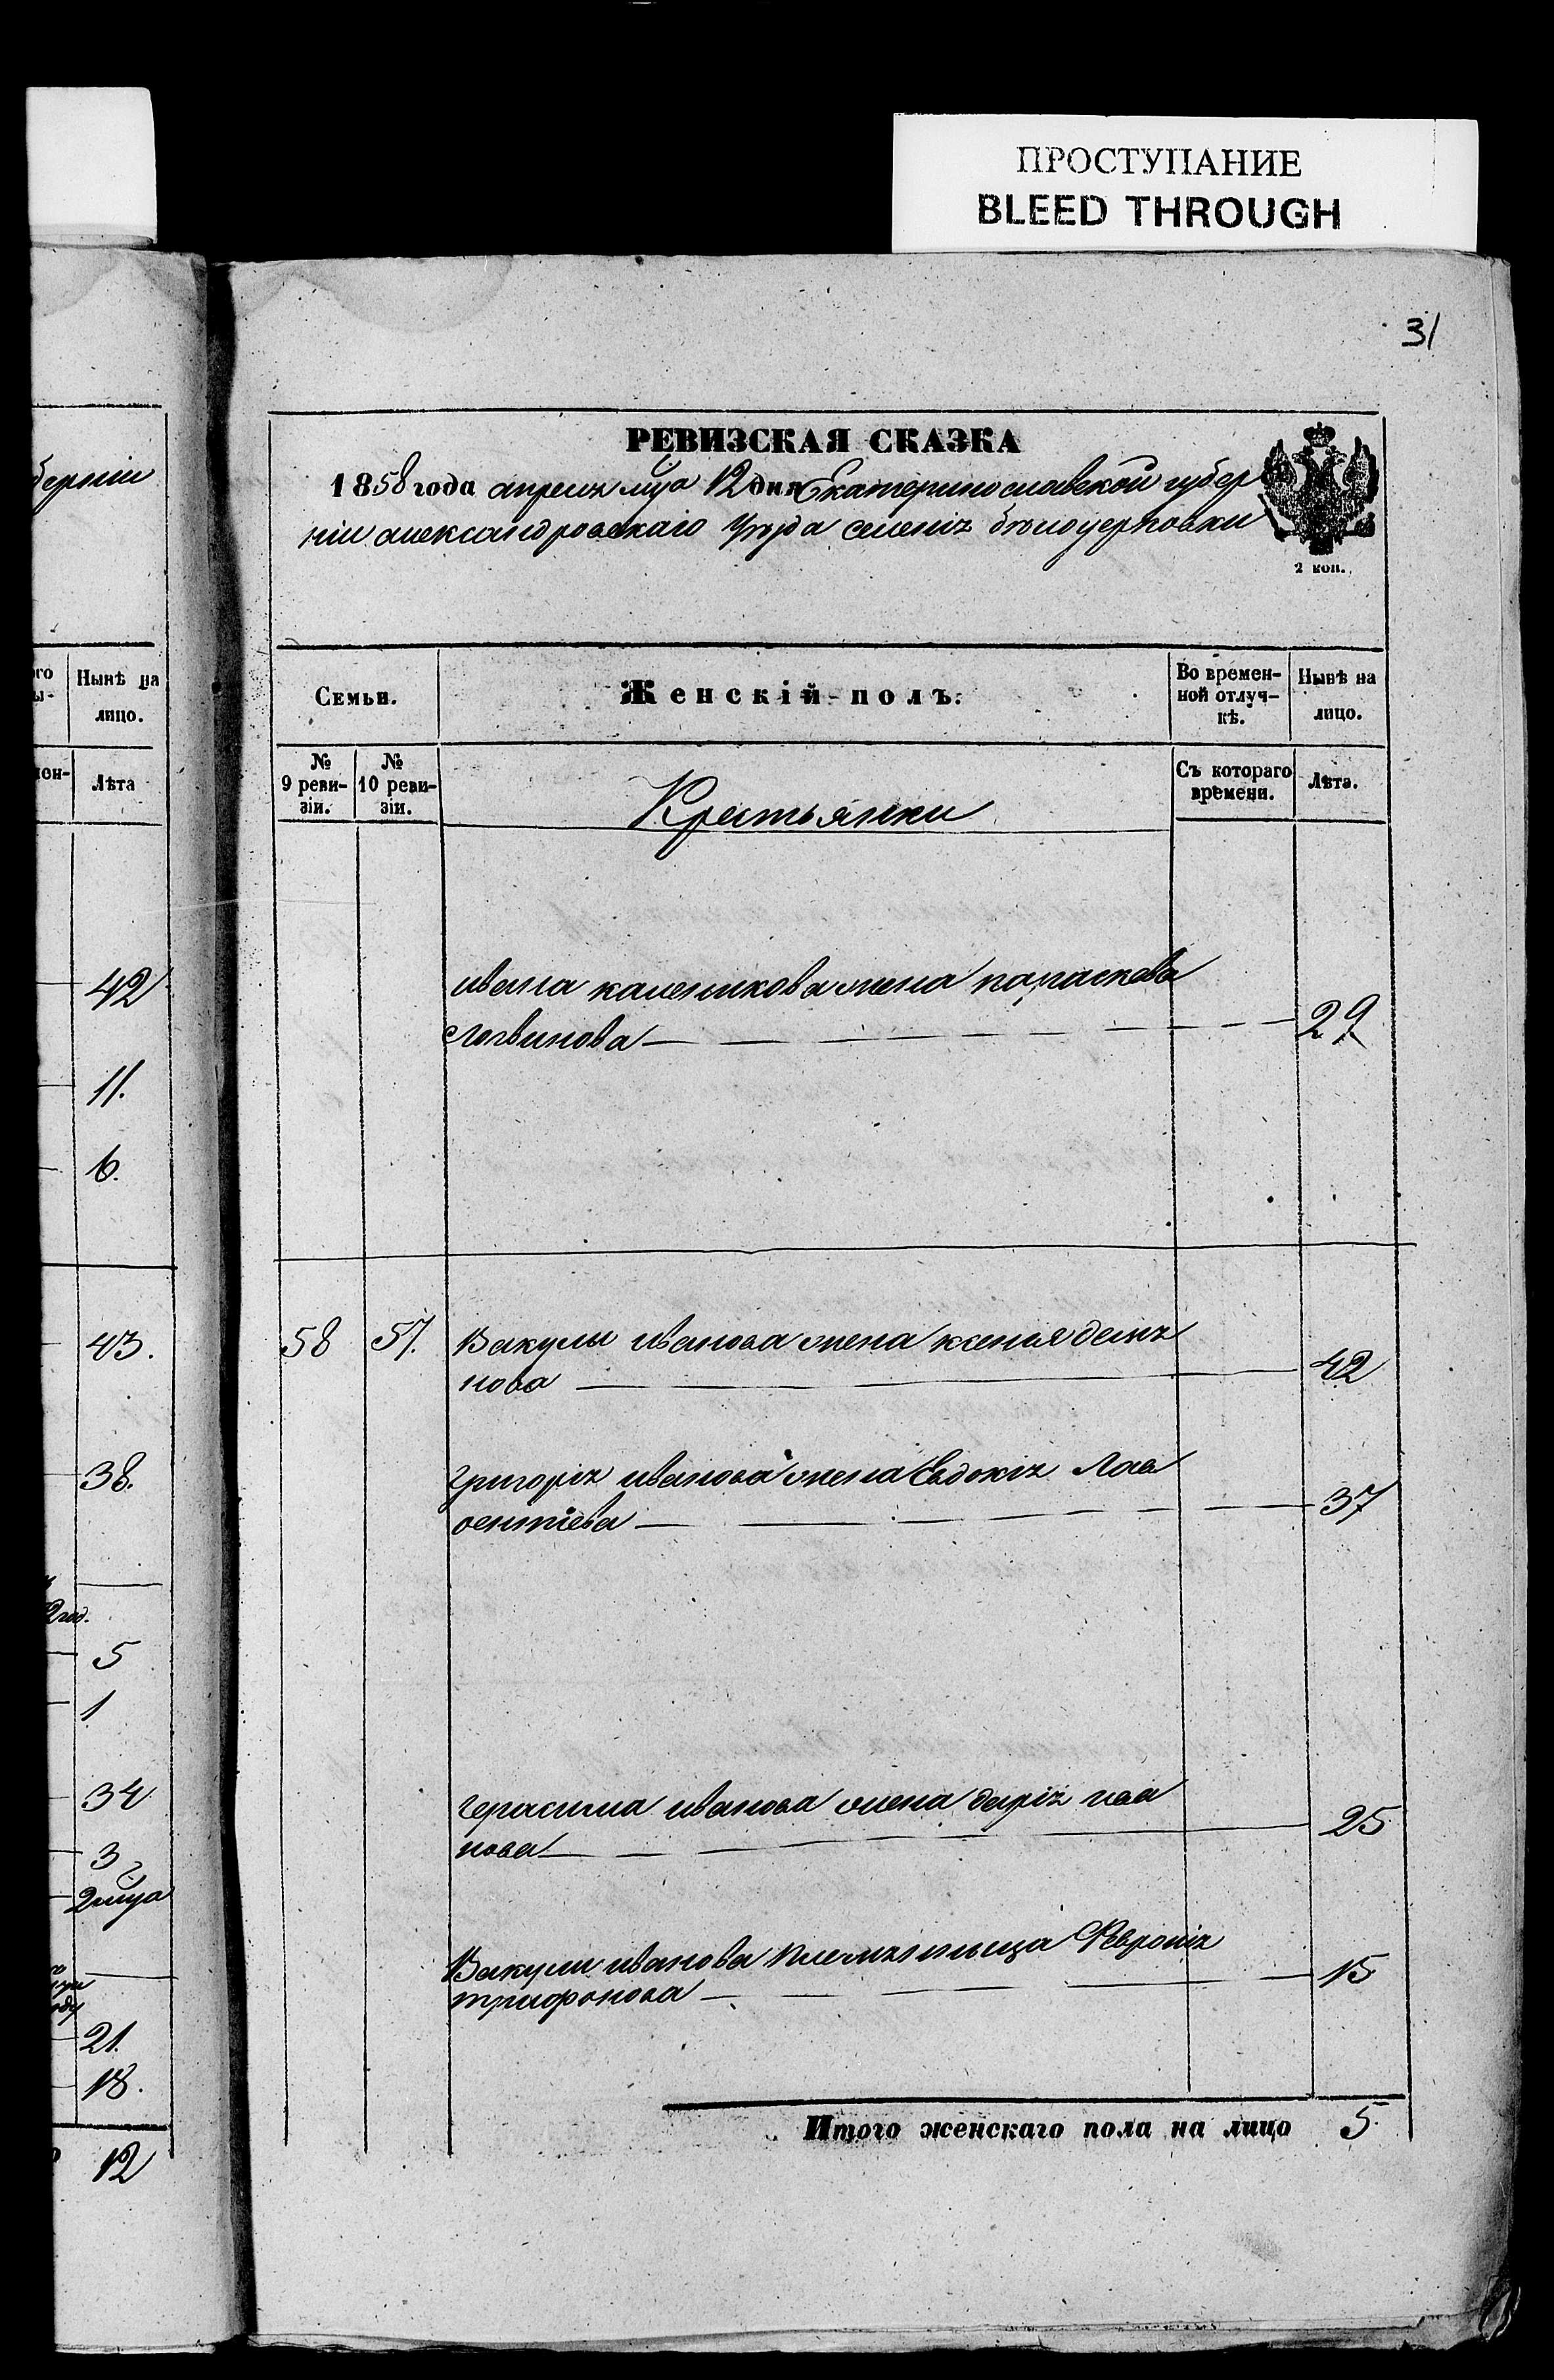 ПРОСТУПАНИЕ
BLEED THROUGH
31
РЕВИЗСКАЯ СКАЗКА
1858 года апреля мца 12 дня Екатеринославской губер
ніи александровскаго уѣзда селенія бѣлоцерковки
2 коп.
Семьи.
Женскій полъ.
Во времен-
ной отлуч-
кѣ.
Нынѣ на
лицо.
№
9 реви-
зіи.
№
10 реви-
зіи.
Крестьянки
Съ котораго
времени.
Лѣта.
ивана каленикова жена параскева
логвинова 29
58 57. Вакулы иванова жена ксенья демя
нова 42
григорія иванова жена Евдокія Лав
рентіева 37
герасима иванова жена дарія ива
нова 25
Вакули иванова племяльница Февронія
трифонова 15
Итого женскаго пола на лицо 5
берніи
Нынѣ на
лицо.
Лѣта
42
11.
6.
43.
38.
5
1
34
3
2 мца
21.
18.
12